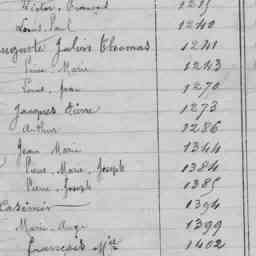 Victor-François 1215
Louis-Paul 1240
Auguste Julien Thomas 1241
Pierre-Marie 1243
Louis-Jean 1270
Jacques Pierre 1273
Arthur 1286
Jean Marie 1344
Pierre-Marie-Joseph 1384
Pierre-Joseph 1385
Casimir 1394
Marie-Ange 1399
François Mie 1402